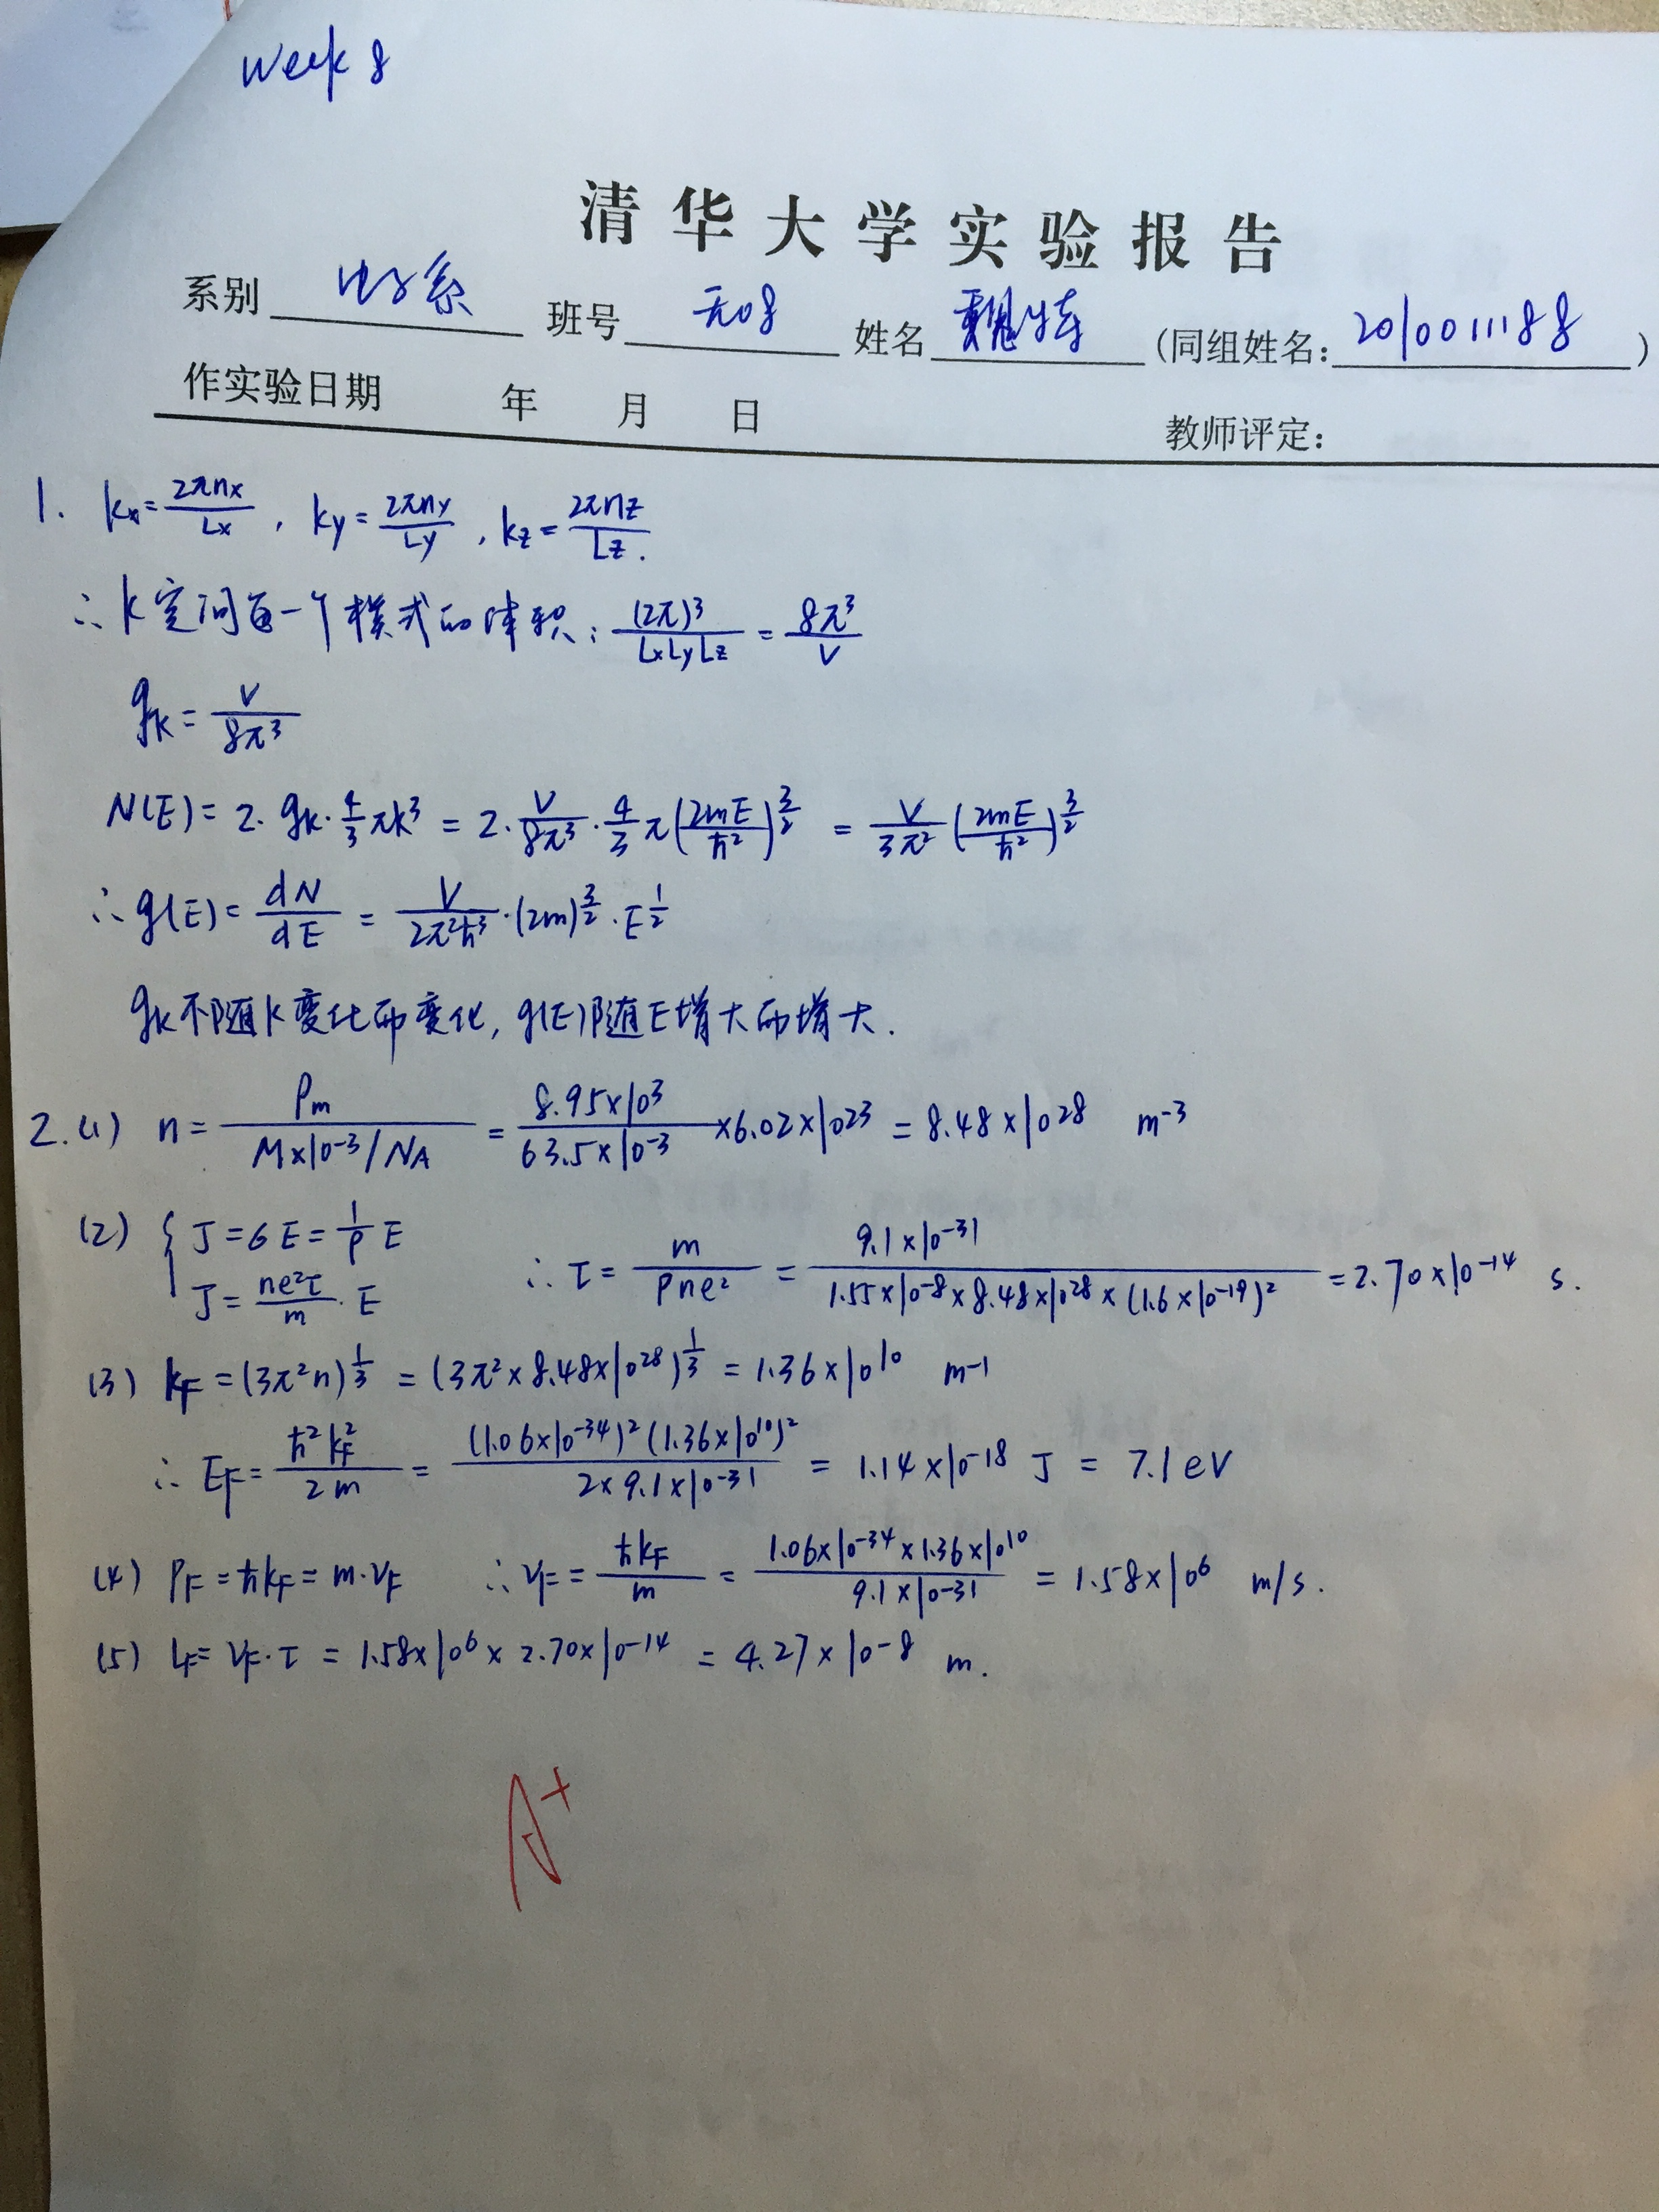 Week 8
清华大学实验报告
系别 电子系 班号 无08 姓名 (同组姓名: 2010011188 )
作实验日期 年 月 日 教师评定:
1. kx=2πnx/Lx, ky=2πny/Ly, kz=2πnz/Lz.
∴ k空间每一个模式的体积: (2π)³/LxLyLz = 8π³/V
gk = V/8π³
N(E) = 2·gk·4/3πk³ = 2·V/8π³·4/3π(2mE/ħ²)^3/2 = V/3π²(2mE/ħ²)^3/2
∴ g(E) = dN/dE = V/2π²ħ³·(2m)^3/2·E^1/2
gk不随k变化而变化, g(E)随E增大而增大.
2.(1) n = ρm/M×10⁻³/NA = 8.95×10³/63.5×10⁻³ ×6.02×10²³ = 8.48×10²⁸ m⁻³
(2) { J=σE=1/ρ E J=ne²τ/m·E ∴ τ = m/ρne² = 9.1×10⁻³¹/1.55×10⁻⁸×8.48×10²⁸×(1.6×10⁻¹⁹)² = 2.70×10⁻¹⁴ s.
(3) kF = (3π²n)^1/3 = (3π²×8.48×10²⁸)^1/3 = 1.36×10¹⁰ m⁻¹
∴ EF = ħ²kF²/2m = (1.06×10⁻³⁴)²(1.36×10¹⁰)²/2×9.1×10⁻³¹ = 1.14×10⁻¹⁸ J = 7.1eV
(4) PF = ħkF = m·vF ∴ vF = ħkF/m = 1.06×10⁻³⁴×1.36×10¹⁰/9.1×10⁻³¹ = 1.58×10⁶ m/s.
(5) LF = vF·τ = 1.58×10⁶×2.70×10⁻¹⁴ = 4.27×10⁻⁸ m.
A⁺